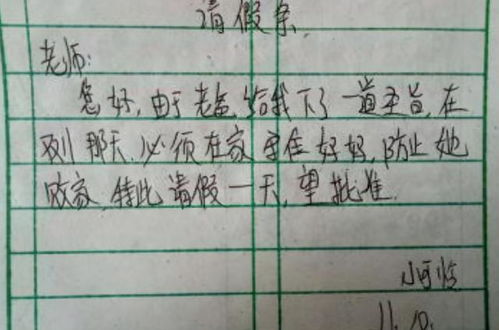 请假条
老师:
您好,由于老爸给我下了一道圣旨,在
别那天必须在家守住好好,防止她
败家,特此请假一天,望批准.
小可怜
11.10